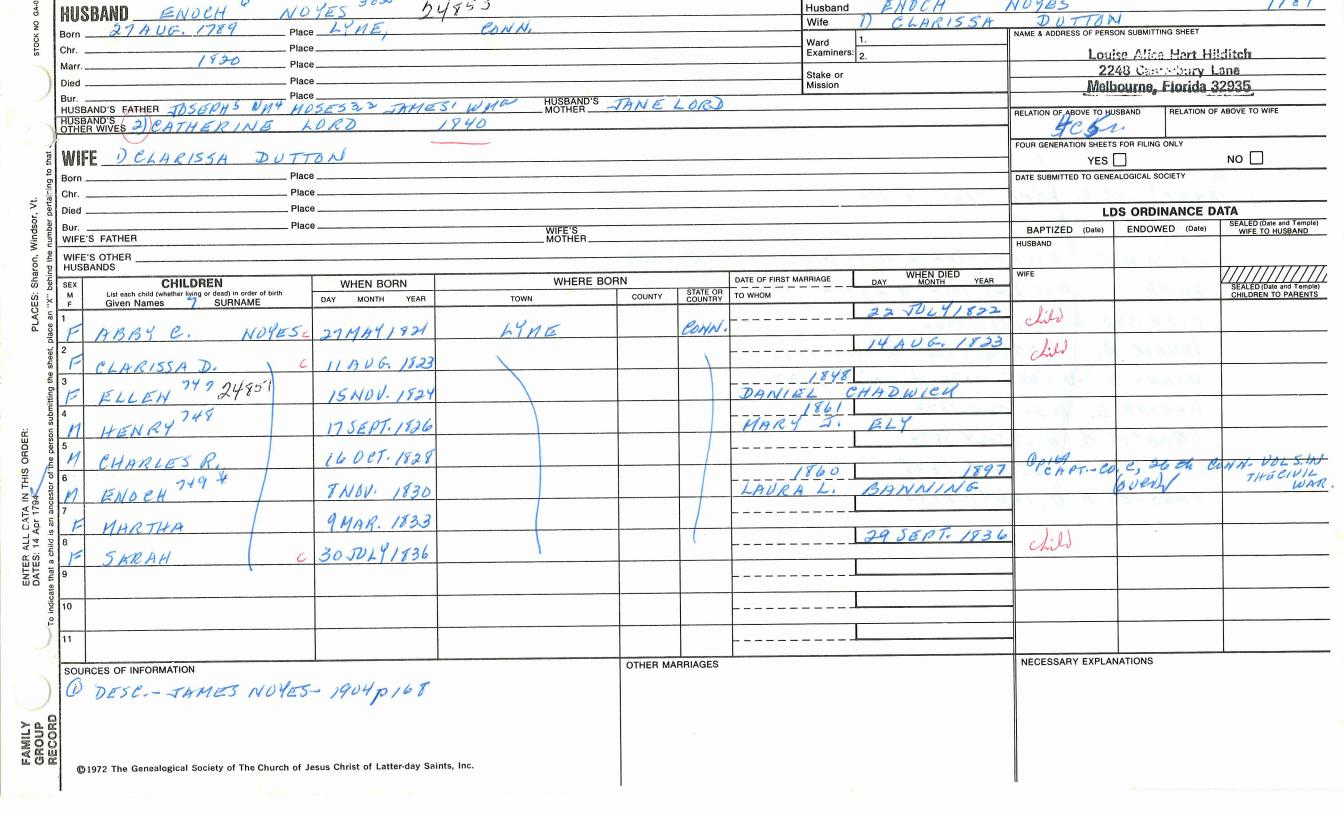 HUSBAND ENOCH NOYES 24853
Husband ENOCH NOYES 1789
Born 27 AUG. 1789 Place LYME, CONN.
Wife 1) CLARISSA DUTTON
Chr. Place
Marr. 1820 Place
Died Place
Bur. Place
Ward Examiners: 1.
2.
Stake or Mission
NAME & ADDRESS OF PERSON SUBMITTING SHEET
Louise Alice Hart Hilditch
2248 Canterbury Lane
Melbourne, Florida 32935
HUSBAND'S FATHER JOSEPH5 WM4 MOSES32 JAMES1 WMA HUSBAND'S MOTHER JANE LORD
HUSBAND'S OTHER WIVES 2) CATHERINE LORD 1840
RELATION OF ABOVE TO HUSBAND RELATION OF ABOVE TO WIFE
FOUR GENERATION SHEETS FOR FILING ONLY
YES NO
DATE SUBMITTED TO GENEALOGICAL SOCIETY
WIFE 1) CLARISSA DUTTON
Born Place
Chr. Place
Died Place
Bur. Place
WIFE'S FATHER WIFE'S MOTHER
WIFE'S OTHER HUSBANDS
LDS ORDINANCE DATA
BAPTIZED (Date) ENDOWED (Date) SEALED (Date and Temple) WIFE TO HUSBAND
HUSBAND
WIFE
SEALED (Date and Temple) CHILDREN TO PARENTS
SEX M F
CHILDREN
List each child (whether living or dead) in order of birth
Given Names SURNAME
WHEN BORN
DAY MONTH YEAR
WHERE BORN
TOWN COUNTY STATE OR COUNTRY
DATE OF FIRST MARRIAGE
TO WHOM
WHEN DIED
DAY MONTH YEAR
1 F ABBY C. NOYES c 27 MAY 1821 LYME CONN. 22 JULY 1822 child
2 F CLARISSA D. c 11 AUG. 1823 14 AUG. 1823 child
3 F ELLEN 747 24851 15 NOV. 1824 1848 DANIEL CHADWICK
4 M HENRY 748 17 SEPT. 1826 1861 MARY J. ELY
5 M CHARLES R. 16 OCT. 1828
6 M ENOCH 749 8 NOV. 1830 1860 LAURA L. BANNING 1897 CAPT.-CO. C, 26th CONN. VOLS. IN THE CIVIL WAR. (OVER)
7 F MARTHA 9 MAR. 1833
8 F SARAH c 30 JULY 1836 29 SEPT. 1836 child
9
10
11
SOURCES OF INFORMATION
① DESC.- JAMES NOYES- 1904 p 168
OTHER MARRIAGES
NECESSARY EXPLANATIONS
©1972 The Genealogical Society of The Church of Jesus Christ of Latter-day Saints, Inc.
FAMILY GROUP RECORD
ENTER ALL DATA IN THIS ORDER:
DATES: 14 Apr 1794
PLACES: Sharon, Windsor, Vt.
To indicate that a child is an ancestor of the person submitting the sheet, place an "X" behind the number pertaining to that
STOCK NO